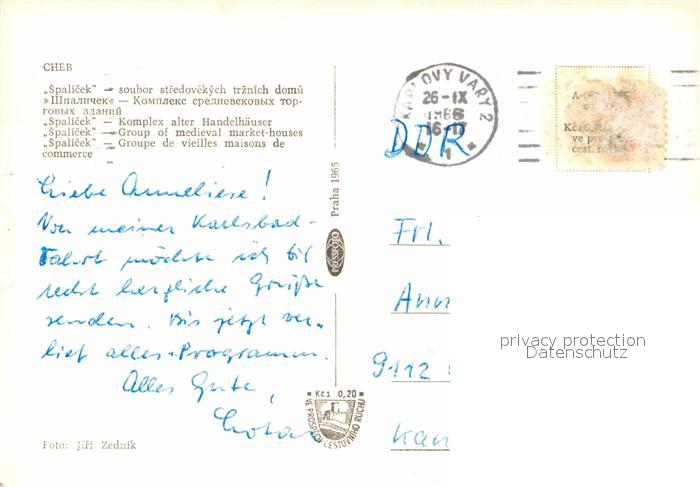 CHEB
„Špalíček" — soubor středověkých tržních domů
»Шпаличек« — Комплекс средневековых тор-
говых зданий
„Špalíček" — Komplex alter Handelhäuser
„Špalíček" — Group of medieval market-houses
„Špalíček" — Groupe de vieilles maisons de
commerce
Liebe Anneliese!
Von meiner Karlsbad-
Fahrt möchte ich Dir
recht herzliche Grüße
senden. Bis jetzt ver-
lief alles Programm.
Alles Gute,
Foto: Jiří Zedník
Praha 1965
PRESSFOTO
Kčs 0,20
VE PROSPĚCH CESTOVNÍHO RUCHU
KARLOVY VARY 2
26-IX
1966
16-17
1
DDR
Frl.
Ann
9112
Kan
Kčs 0,
ve pro
cest. ru
privacy protection
Datenschutz